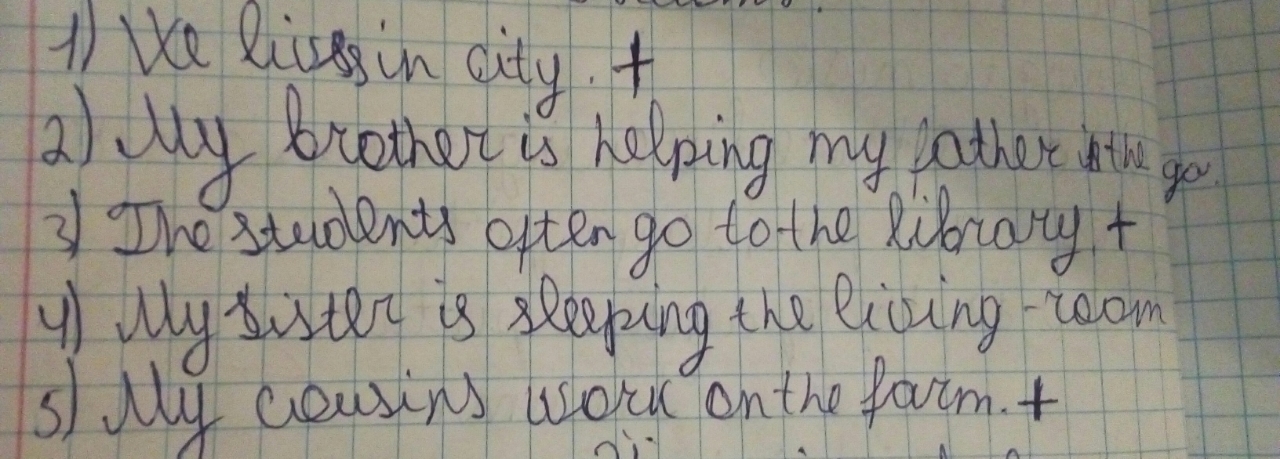 1) We lives in city. +
2) My brother is helping my father in the ga.
3) The students often go to the library, +
4) My sister is sleeping the living-room
5) My cousins work on the farm. +